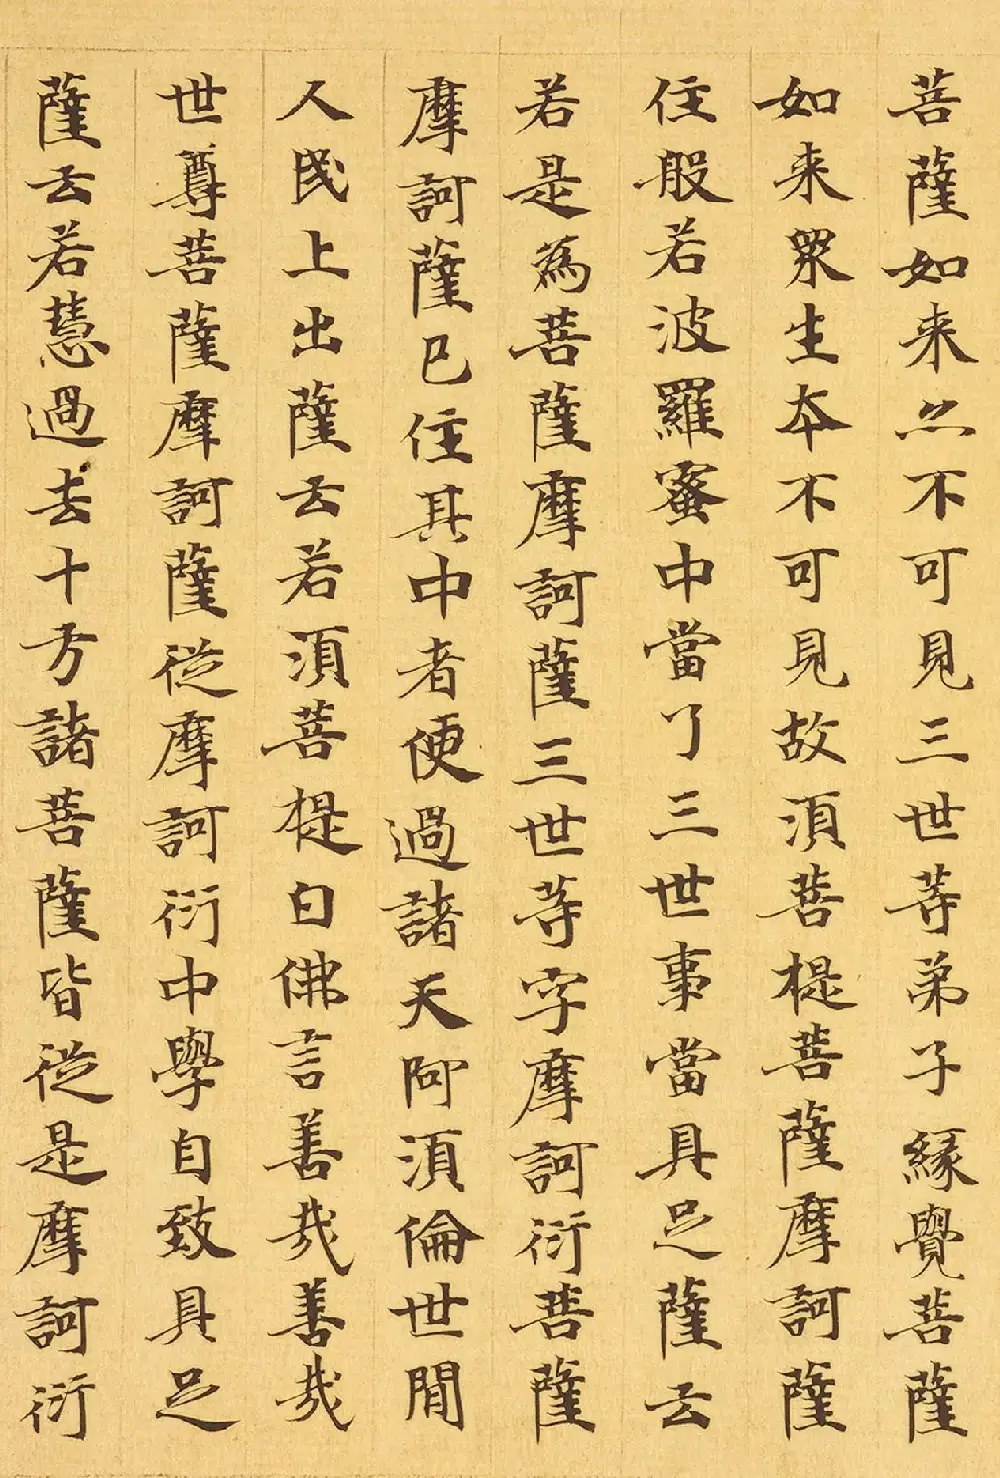 菩薩如来亦不可見三世等弟子緣覺菩薩
如来眾生本不可見故須菩提菩薩摩訶薩
住般若波羅蜜中當了三世事當具足薩云
若是為菩薩摩訶薩三世等字摩訶衍菩薩
摩訶薩已住其中者便過諸天阿須倫世間
人民上出薩云若須菩提白佛言善哉善哉
世尊菩薩摩訶薩從摩訶衍中學自致具足
薩云若慧過去十方諸菩薩皆從是摩訶衍